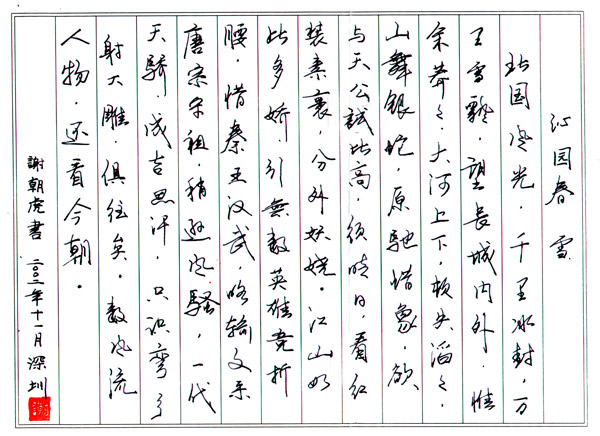 沁园春 雪
北国风光，千里冰封，万
里雪飘。望长城内外，惟
余莽々，大河上下，顿失滔々，
山舞银蛇，原驰蜡象，欲
与天公試比高，须晴日，看红
装素裹，分外妖娆。江山如
此多娇，引無數英雄竞折
腰。惜秦王汉武，略输文采
唐宗宋祖，稍逊风骚，一代
天骄，成吉思汗，只识弯弓
射大雕。俱往矣，數风流
人物，还看今朝。
謝朝虎書 二〇〇二年十一月 深圳